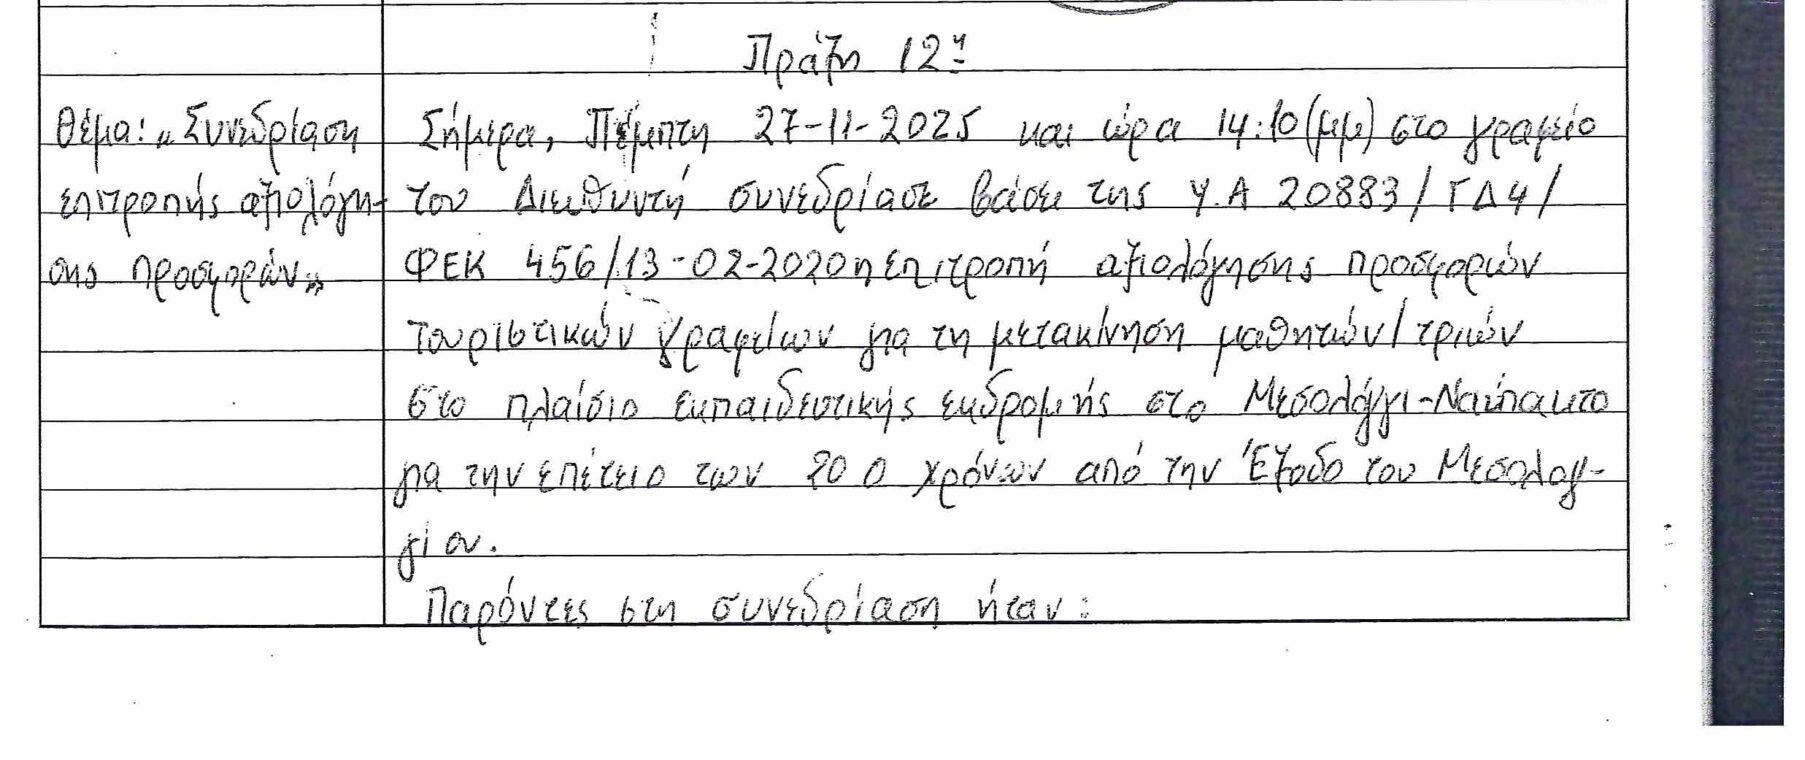 Πράξη 12η
Θέμα: «Συνεδρίαση
επιτροπής αξιολόγη-
σης προσφορών»
Σήμερα, Πέμπτη 27-11-2025 και ώρα 14:10(μμ) στο γραφείο
του Διευθυντή συνεδρίασε βάσει της Υ.Α 20883/ΓΔ4/
ΦΕΚ 456/13-02-2020 η επιτροπή αξιολόγησης προσφορών
τουριστικών γραφείων για τη μετακίνηση μαθητών/τριών
στο πλαίσιο εκπαιδευτικής εκδρομής στο Μεσολόγγι-Ναύπακτο
για την επέτειο των 200 χρόνων από την Έξοδο του Μεσολογ-
γίου.
Παρόντες στη συνεδρίαση ήταν: